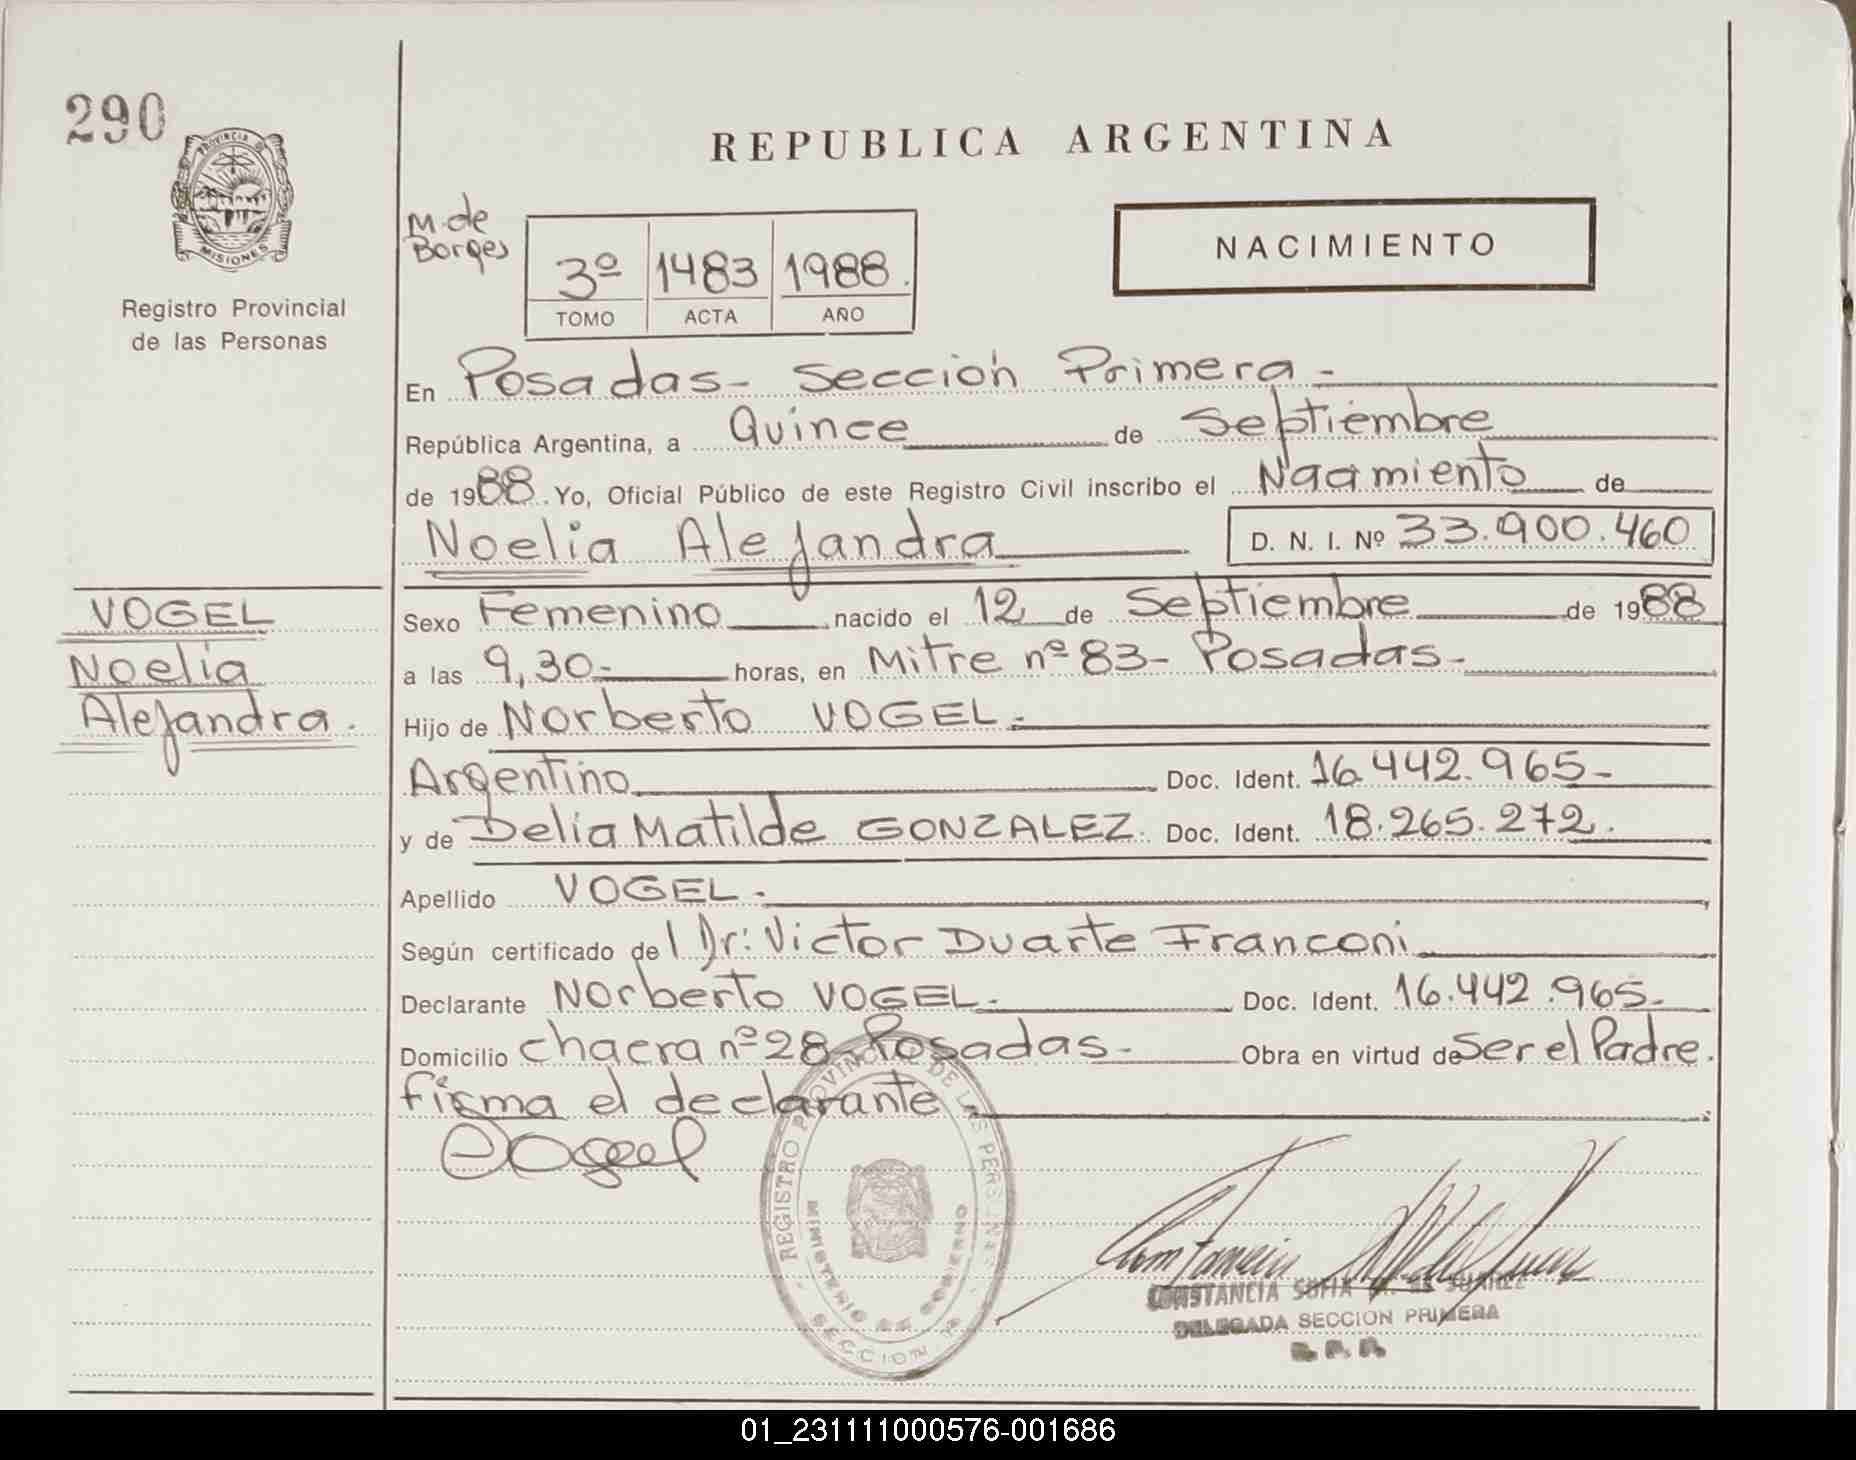 290
PROVINCIA DE
MISIONES
Registro Provincial
de las Personas
VOGEL
Noelia
Alejandra.
REPUBLICA ARGENTINA
M. de
Borges
3º 1483 1988.
TOMO ACTA AÑO
NACIMIENTO
En Posadas- Sección Primera-
República Argentina, a Quince de Septiembre
de 1988. Yo, Oficial Público de este Registro Civil inscribo el Nacimiento de
Noelia Alejandra D. N. I. Nº 33.900.460
Sexo Femenino nacido el 12 de Septiembre de 1988
a las 9,30- horas, en Mitre nº 83- Posadas-
Hijo de Norberto VOGEL.-
Argentino Doc. Ident. 16.442.965-
y de Delia Matilde GONZALEZ. Doc. Ident. 18.265.272.
Apellido VOGEL.-
Según certificado del Dr: Victor Duarte Franconi
Declarante Norberto VOGEL.- Doc. Ident. 16.442.965-
Domicilio chacra nº 28 Posadas- Obra en virtud de Ser el Padre.
firma el declarante.
Vogel
REGISTRO PROVINCIAL DE LAS PERSONAS
MINISTERIO DE GOBIERNO
SECCION 1a
CONSTANCIA SOFIA M. DE SUAREZ
DELEGADA SECCION PRIMERA
R. P. P.
01_231111000576-001686